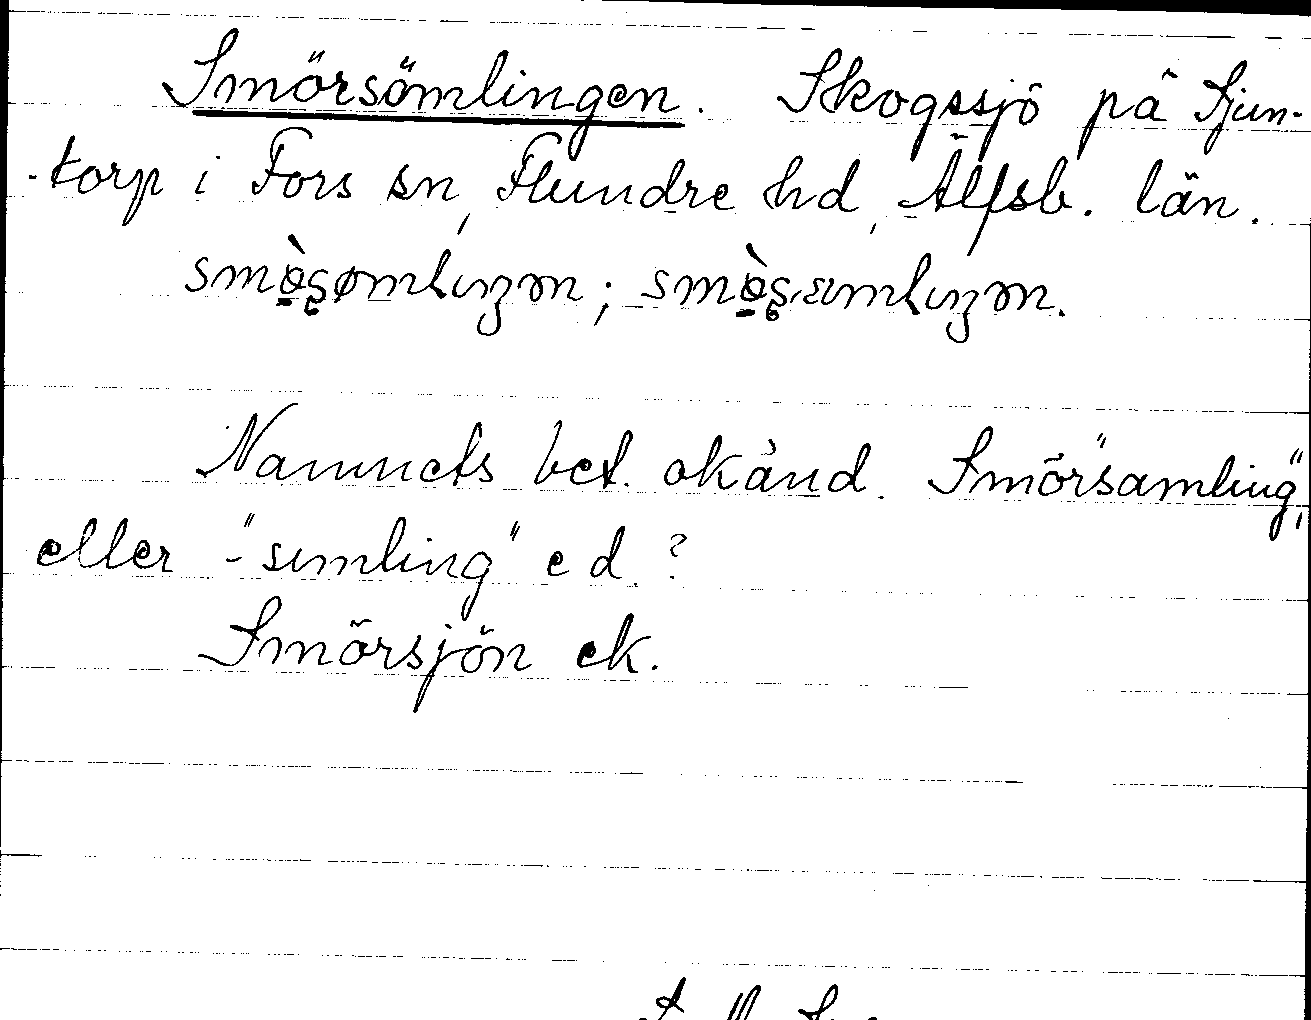 Smörsömlingen. Skogssjö på Sjun-
-torp i Fors sn, Flundre hd, Älfsb. län.
Namnets bet. okänd. Smörsamling",
eller "-sumling" e d. ?
Smörsjön ek.